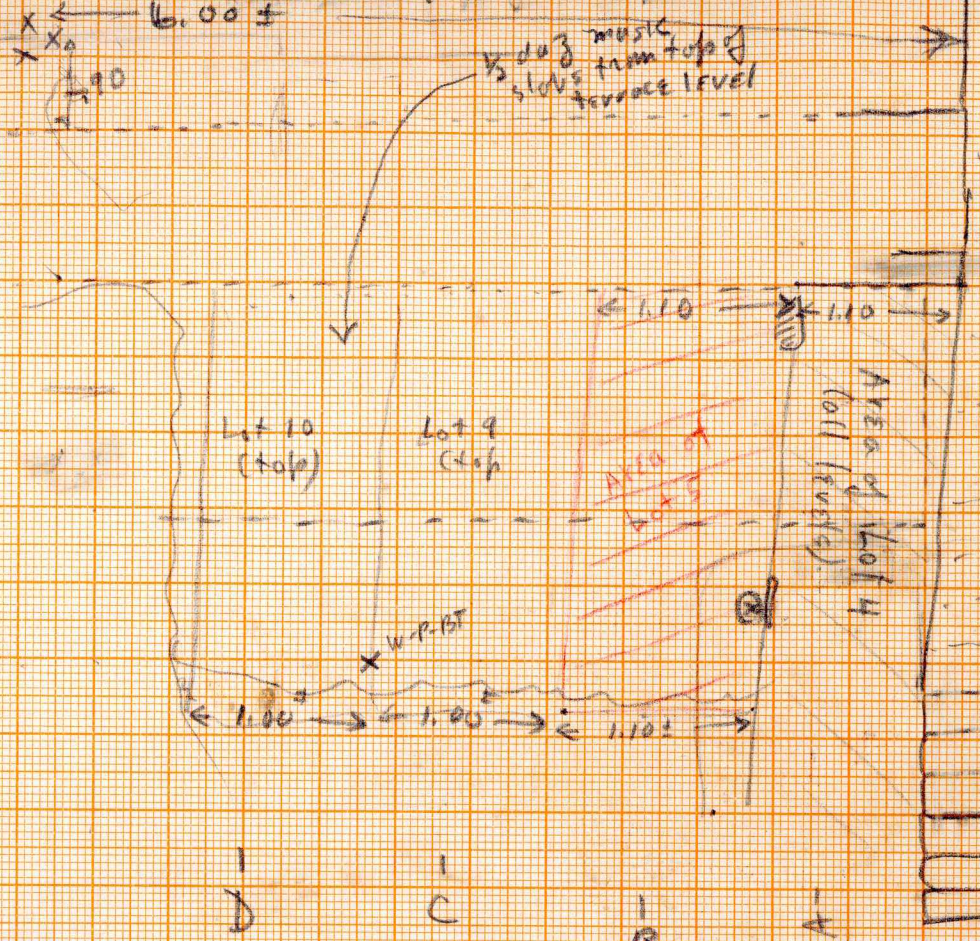 6.00 ±
.90
slopes from top of
terrace level
1.10
1.10
Lot 10
(top)
Lot 9
(top
Area of
Lot 5
Area of Lot 4
(all levels).
W-P-BT
1.00
1.00
1.10±
D
C
B
A